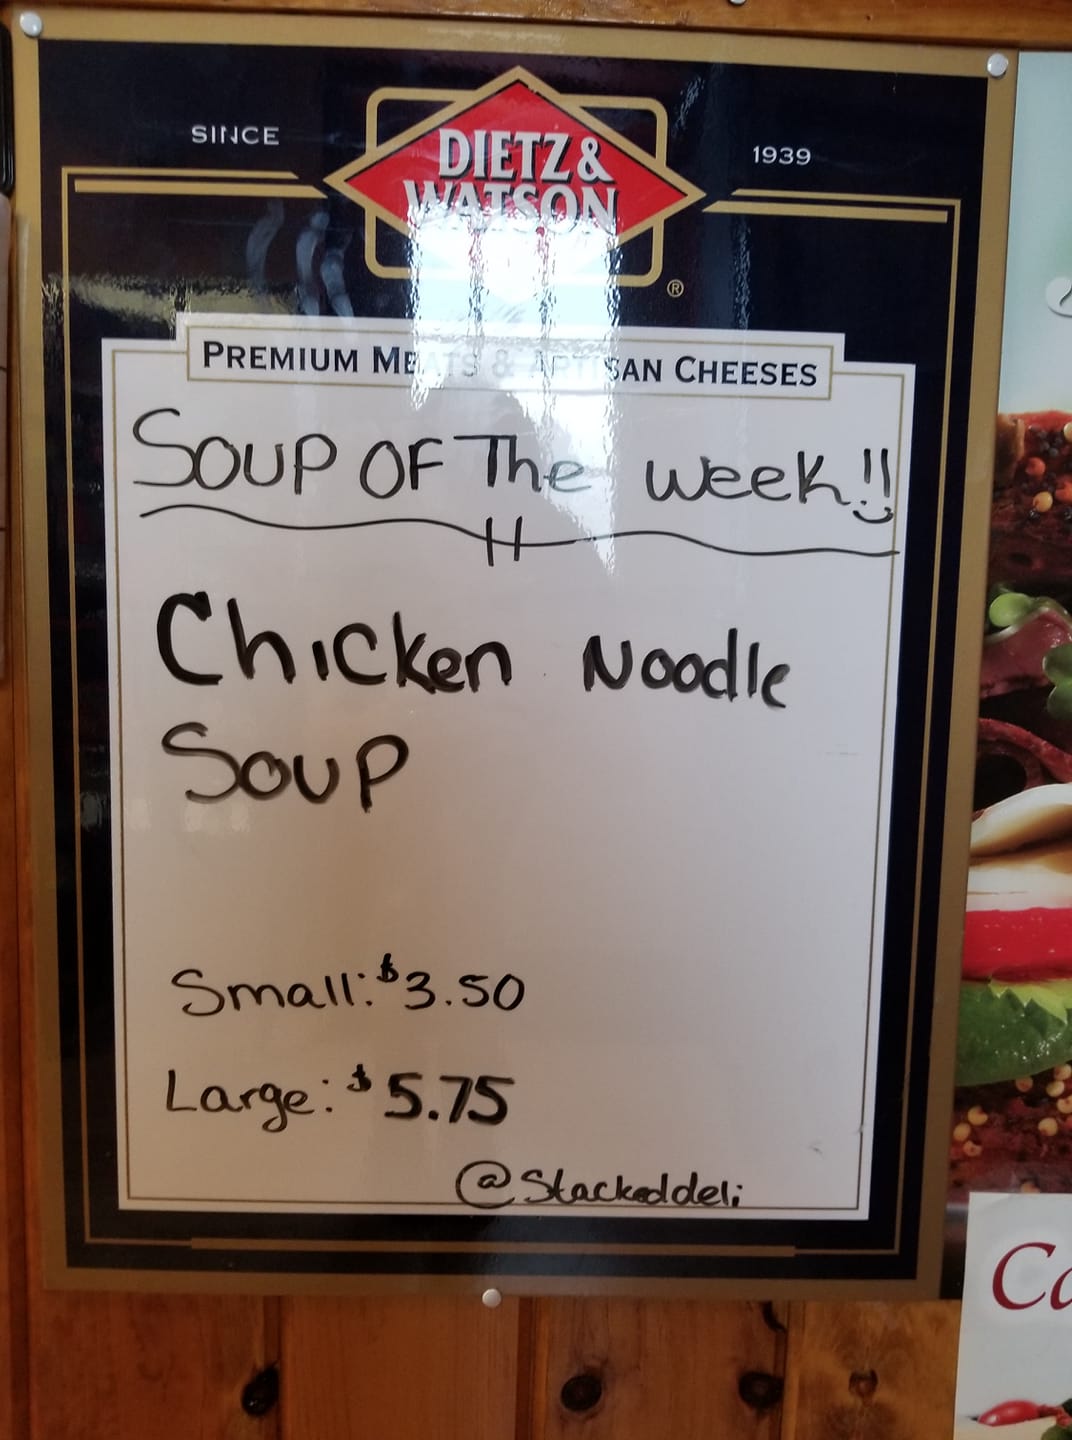 SINCE
1939
DIETZ &
WATSON
®
PREMIUM MEATS & ARTISAN CHEESES
SOUP OF The week!!
Chicken Noodle
Soup
Small: $3.50
Large: $5.75
@Stackeddeli